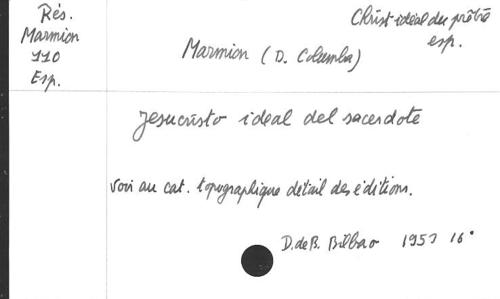 Rés.
Marmion
110
Esp.
Christ idéal du prêtre
esp.
Marmion (D. Columba)
Jesucristo ideal del sacerdote
Voir au cat. topographique détail des éditions.
D. de B. Bilbao 1953 16°